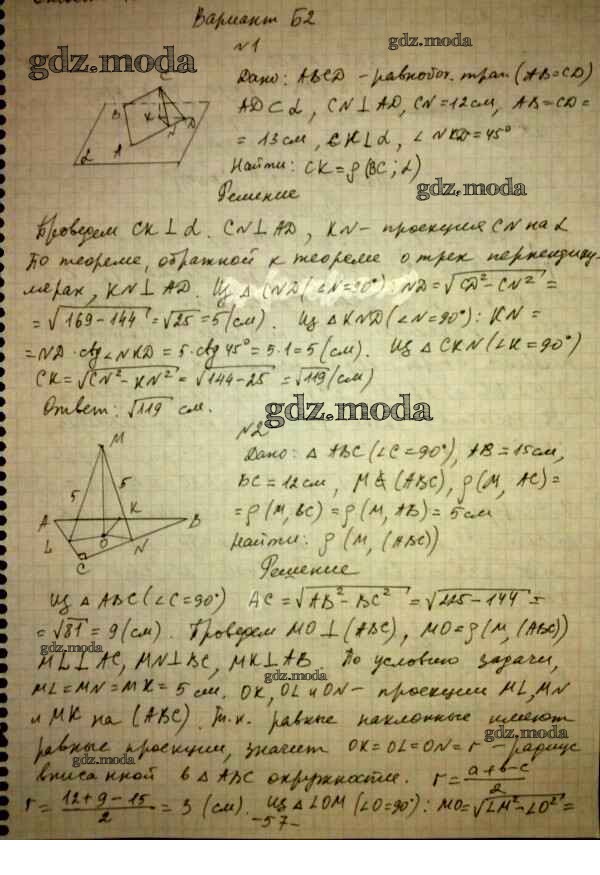 Вариант Б2
gdz.moda
gdz.moda
№1
Дано: ABCD – равнобок. трап (AB=CD)
AD⊂α, CN⊥AD, CN=12см, AB=CD=
=13см, CK⊥α, ∠NKD=45°
Найти: CK=ρ(BC;α)
gdz.moda
Решение
B C K D N A α
Проведем CK⊥α. CN⊥AD, KN – проекция CN на α
По теореме, обратной к теореме о трех перпендику-
лярах, KN⊥AD. Из △CND(∠N=90°) ND=√CD²-CN² =
=√169-144=√25=5(см). Из △KND(∠N=90°): KN=
=ND·ctg∠NKD=5·ctg45°=5·1=5(см). Из △CKN(∠K=90°)
CK=√CN²-KN²=√144-25=√119(см)
Ответ: √119 см.
gdz.moda
№2
Дано: △ABC(∠C=90°), AB=15см,
BC=12см, M∉(ABC), ρ(M, AC)=
=ρ(M,BC)=ρ(M,AB)=5см
Найти: ρ(M,(ABC))
Решение
M 5 5 A K B L O N C
Из △ABC(∠C=90°) AC=√AB²-BC²=√225-144=
=√81=9(см). Проведем MO⊥(ABC), MO=ρ(M,(ABC))
gdz.moda
gdz.moda
ML⊥AC, MN⊥BC, MK⊥AB. По условию задачи,
ML=MN=MK=5см. OK, OL и ON – проекции ML, MN
и MK на (ABC). Т.к. равные наклонные имеют
gdz.moda
равные проекции, значит OK=OL=ON=r – радиус
gdz.moda
вписанной в △ABC окружности. r=a+b-c/2
r=12+9-15/2=3(см). Из △LOM(∠O=90°): MO=√LM²-LO²=
-57-